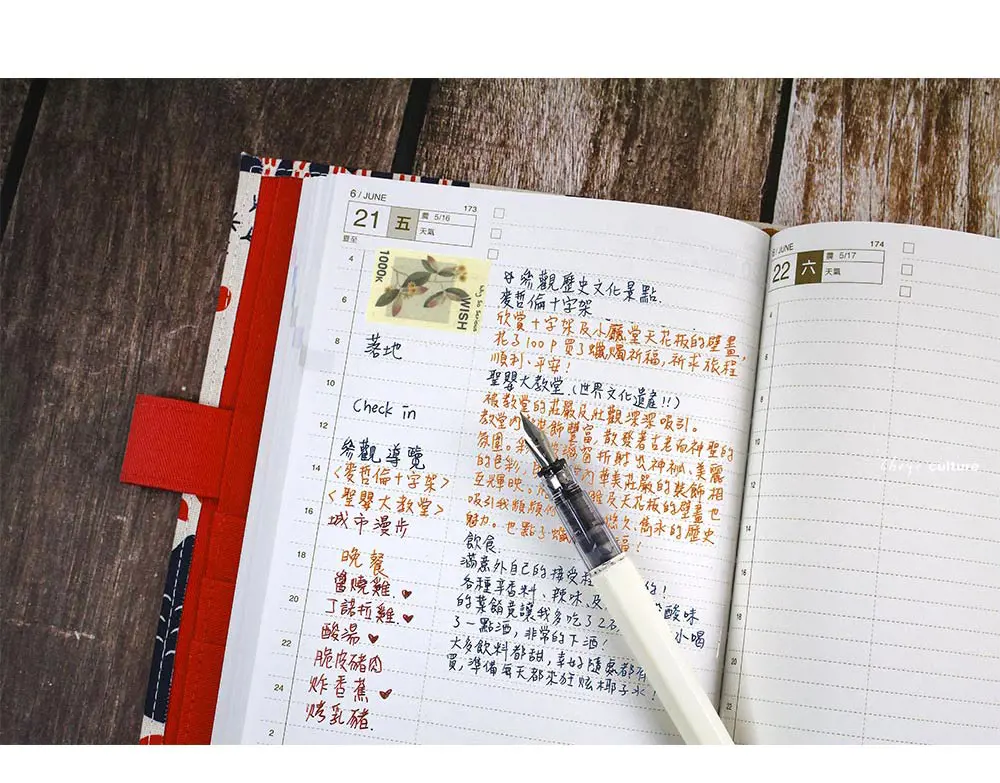 6 / JUNE
173
21 五
農 5/16
天氣
夏至
1000K
WISH
落地
Check in
參觀導覽
<麥哲倫十字架>
<聖嬰大教堂>
城市漫步
晚餐
醬燒雞
丁諾拉雞
酸湯
脆皮豬肉
炸香蕉
烤乳豬
參觀歷史文化景點.
麥哲倫十字架
欣賞十字架及小廳堂天花板的壁畫,
花了100P買了蠟燭祈福,祈求旅程
順利、平安!
聖嬰大教堂.(世界文化遺產!!)
被教堂的莊嚴及壯觀深深吸引。
教堂內 飾豐富,散發著古老而神聖的
氛圍。 折射出神祕、美麗
的色彩, 內華美莊嚴的裝飾相
互輝映。 及天花板的壁畫也
吸引我頻頻 悠久、雋永的歷史
魅力。也點了蠟 福!
飲食
滿意外自己的接受程 的!
各種辛香料、辣味、及 酸味
的菜餚竟讓我多吃了2 小喝
了一點酒,非常的下酒!
大多飲料都甜,幸好隨處都有
買,準備每天都來狂炫椰子水!
4
6
8
10
12
14
16
18
20
22
24
2
6 / JUNE
174
22 六
農 5/17
天氣
culture